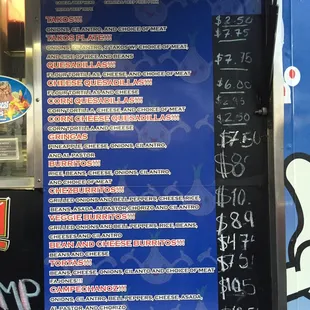 TAKOS!!!
$2.50
ONIONS, CILANTRO, AND CHOICE OF MEAT
$7.75
TAKOS PLATE!!!
ONIONS, CILANTRO, 2 TAKOS W/ CHOICE OF MEAT,
AND SIDE OF RICE AND BEANS
QUESADILLAS!!!
FLOUR TORTILLAS, CHEESE, AND CHOICE OF MEAT
CHEESE QUESADILLAS!!!
$6.00
FLOUR TORTILLAS AND CHEESE
CORN QUESADILLAS!!!
CORN TORTILLA, CHEESE, AND CHOICE OF MEAT
CORN CHEESE QUESADILLAS!!!
$2.50
CORN TORTILLA AND CHEESE
GRINGAS
PINEAPPLE, CHEESE, ONION, CILANTRO,
AND AL PASTOR
BURRITOS!!!
RICE, BEANS, CHEESE, ONIONS, CILANTRO,
AND CHOICE OF MEAT
CHEXBURRITOS!!!
GRILLED ONIONS AND BELL PEPPERS, CHEESE, RICE,
BEANS, ASADA, AL PASTOR, CHORIZO AND CILANTRO
VEGGIE BURRITOS!!!
GRILLED ONIONS AND BELL PEPPERS, RICE, BEANS,
CHEESE AND CILANTRO
BEAN AND CHEESE BURRITOS!!!
BEANS AND CHEESE
TORTAS!!!
BEANS, CHEESE, ONIONS, CILANTO AND CHOICE OF MEAT
CAMPECHANOZ!!!
ONIONS, CILANTRO, BELL PEPPERS, CHEESE, ASADA,
AL PASTOR, AND CHORIZO